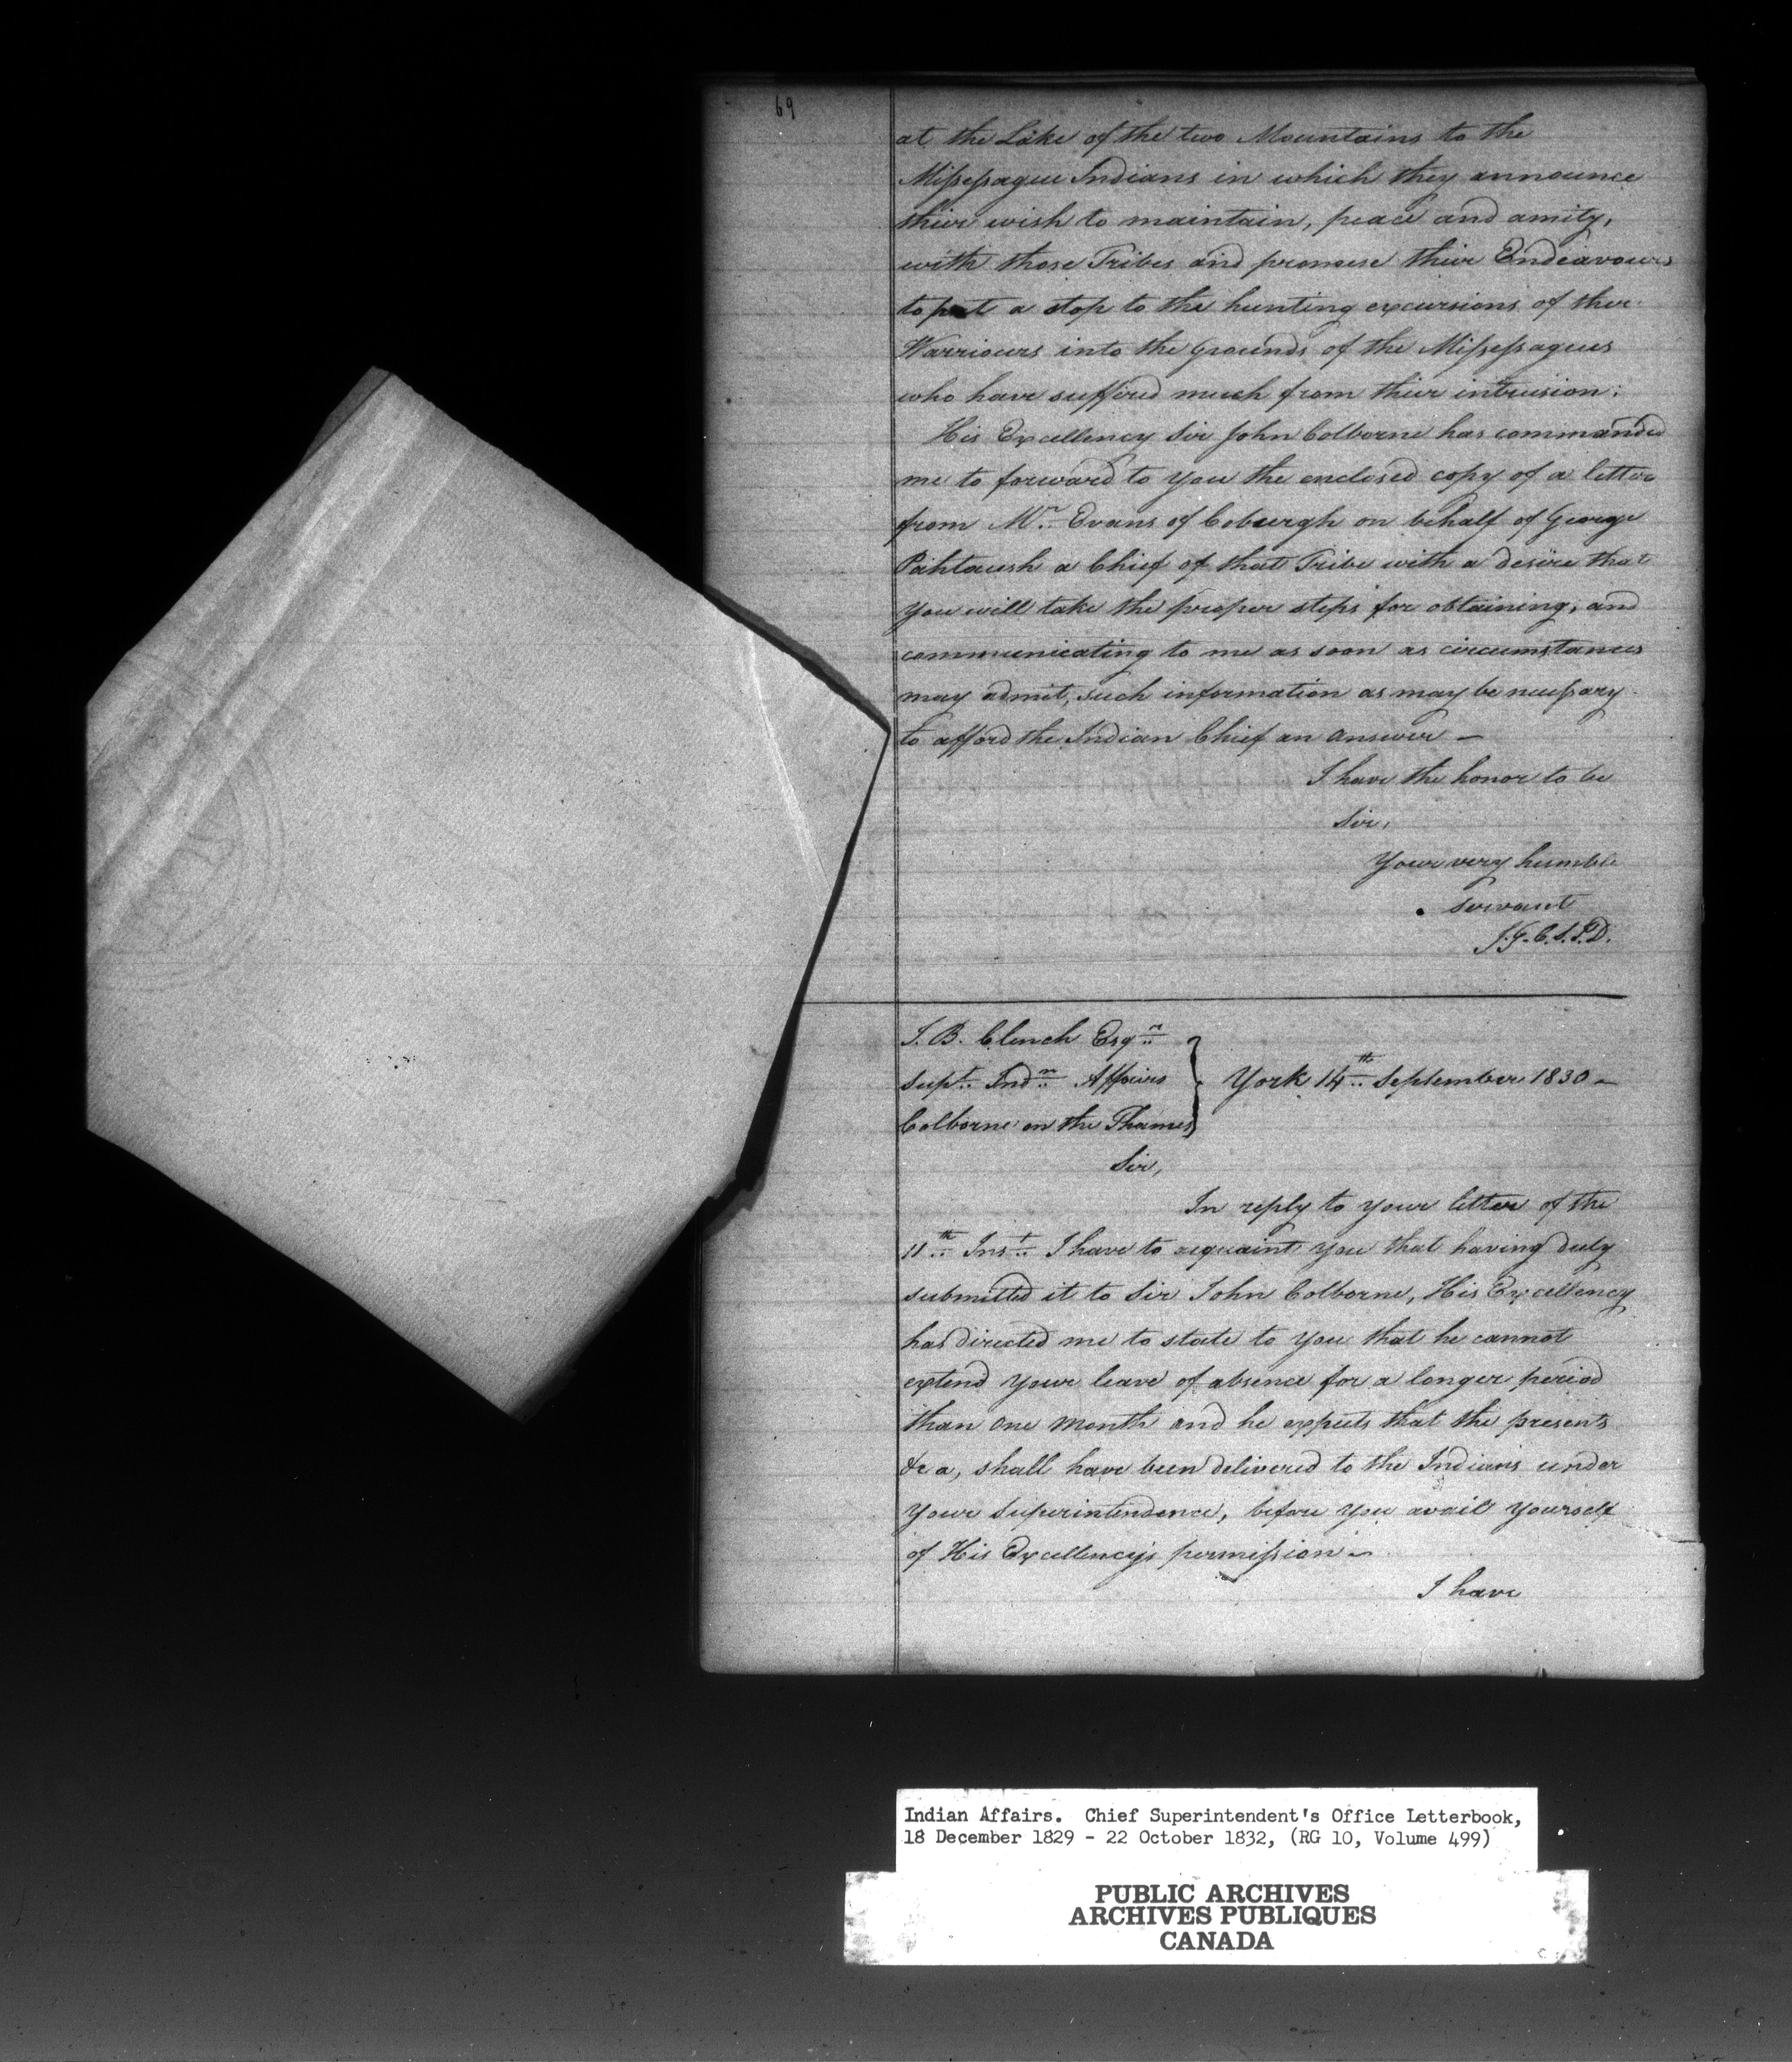 69
at the Lake of the two Mountains to the
Missessague Indians in which they announce
thier wish to maintain, peace and amity,
with those Tribes and promise thier Endeavours
to put a stop to the hunting excursions of ther
Warriours into the Grounds of the Missessagues
who have suffired much from thier intrusion.
His Excellency Sir John Colborne has commanded
me to forward to you the enclosed copy of a letter
from Mr. Evans of Coburgh on behalf of George
Pahtaush a Chief of that Tribe with a desire that
you will take the proper steps for obtaining, and
communicating to me as soon as circumstances
may admit, such information as may be necessary
to afford the Indian Chief an answer —
I have the honor to be
Sir,
Your very humble
Servant
J.G.C.S.I.D.
J. B. Clench Esqr.
Supt. Indn. Affairs
Colborne on the Thames
York 14th September 1830 —
Sir,
In reply to your letter of the
11th Inst. I have to acquaint you that having duly
submitted it to Sir John Colborne, His Excellency
has directed me to state to you that he cannot
extend your leave of absence for a longer period
than one month and he expects that the presents
&c a, shall have been delivered to the Indians under
your Superintendence, before you avail yourself
of His Excellency's permission —
I have
Indian Affairs. Chief Superintendent's Office Letterbook,
18 December 1829 - 22 October 1832, (RG 10, Volume 499)
PUBLIC ARCHIVES
ARCHIVES PUBLIQUES
CANADA